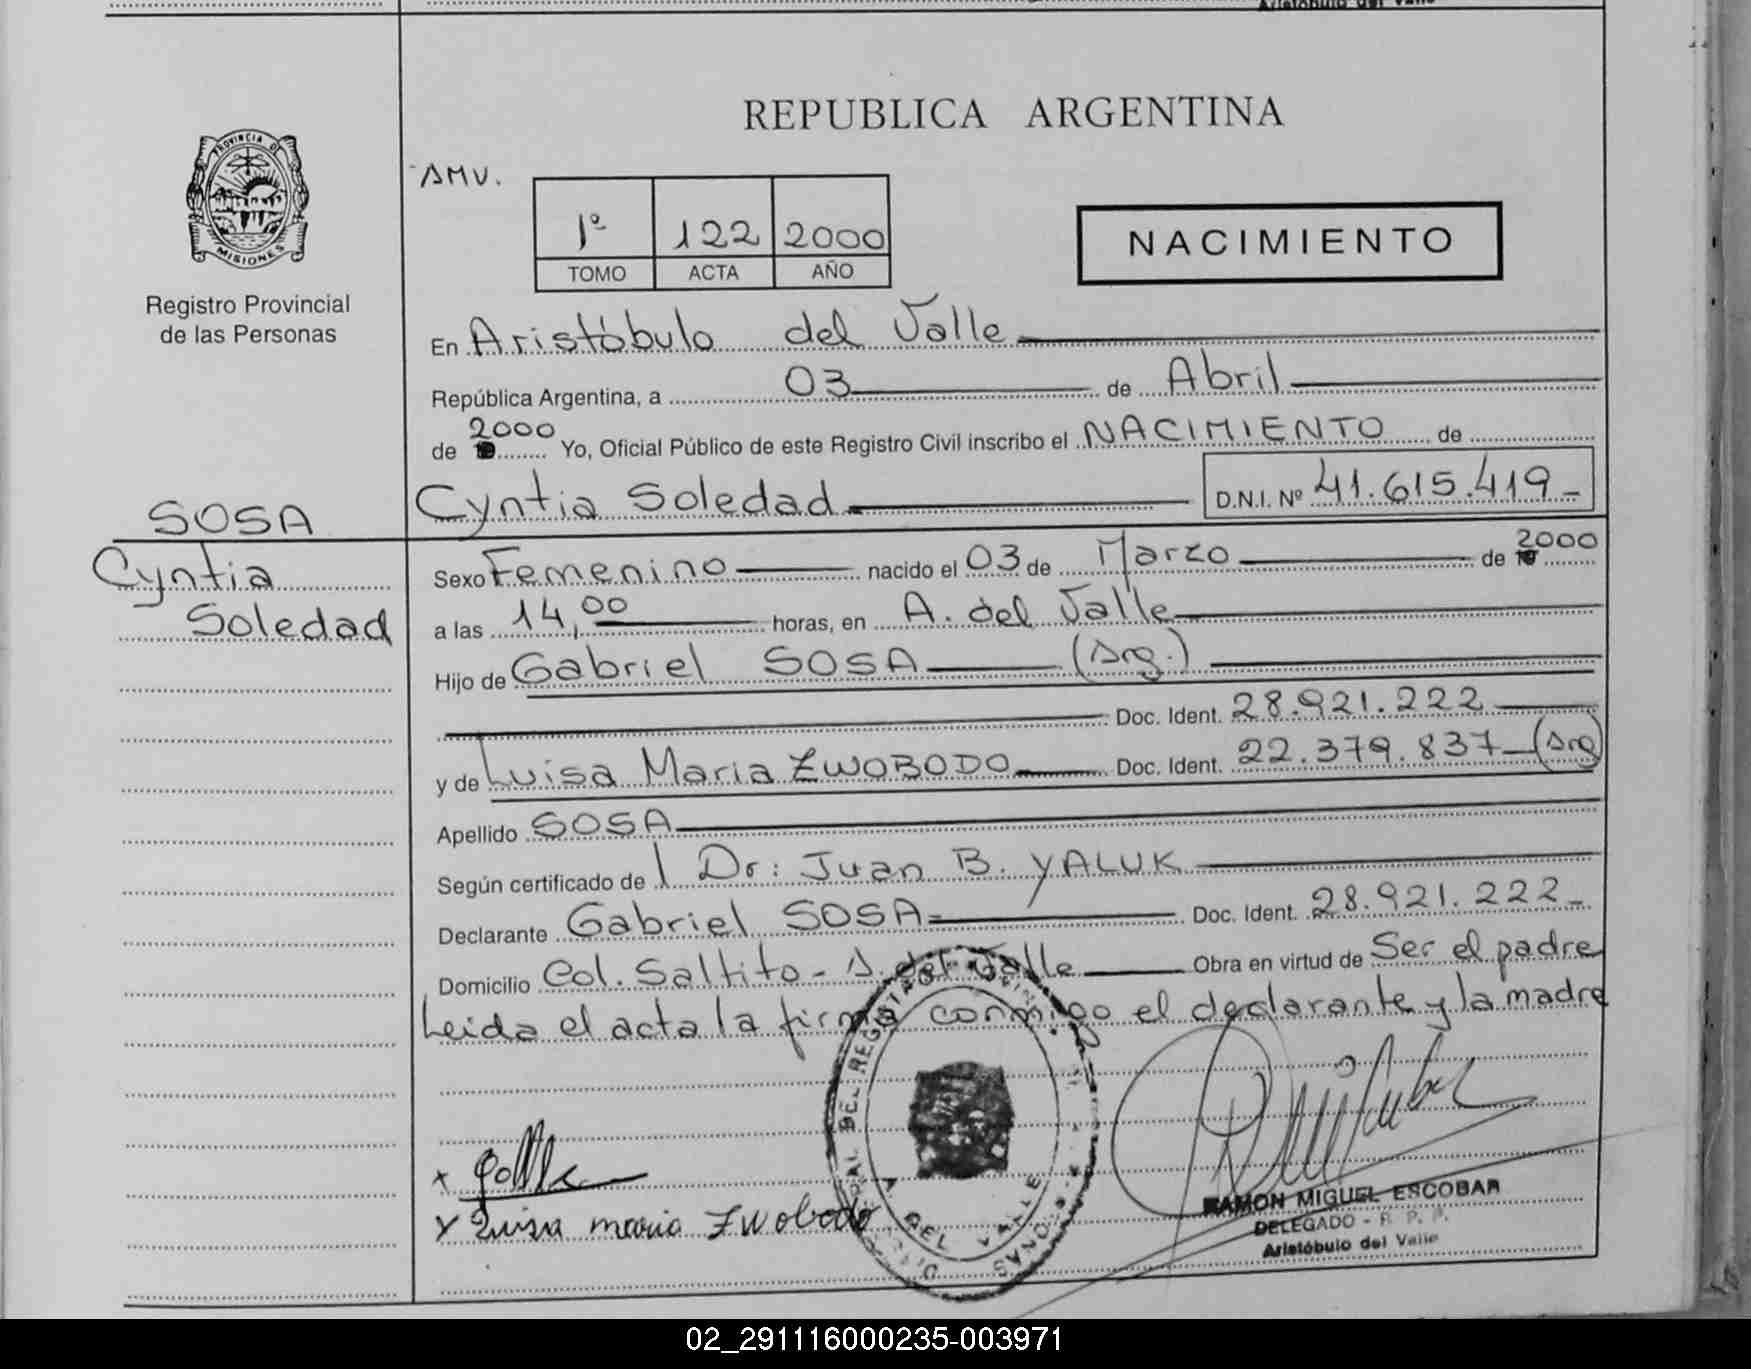 Aristóbulo del Valle
REPUBLICA ARGENTINA
PROVINCIA DE
MISIONES
Registro Provincial
de las Personas
AMV.
1º 122 2000
TOMO ACTA AÑO
NACIMIENTO
En Aristóbulo del Valle
República Argentina, a 03 de Abril
de 2000 Yo, Oficial Público de este Registro Civil inscribo el NACIMIENTO de
Cyntia Soledad D.N.I. Nº 41.615.419-
SOSA
Cyntia
Soledad
Sexo Femenino nacido el 03 de Marzo de 2000
a las 14,00 horas, en A. del Valle
Hijo de Gabriel SOSA (Arg.)
Doc. Ident. 28.921.222
y de Luisa Maria ZWOBODO Doc. Ident. 22.379.837 (Arg)
Apellido SOSA
Según certificado de Dr: Juan B. YALUK
Declarante Gabriel SOSA Doc. Ident. 28.921.222-
Domicilio Col. Saltito - A. del Valle Obra en virtud de Ser el padre
Leida el acta la firma conmigo el declarante y la madre
x
x Luisa maria Zwobodo
RAMON MIGUEL ESCOBAR
DELEGADO - R. P. P.
Aristóbulo del Valle
02_291116000235-003971